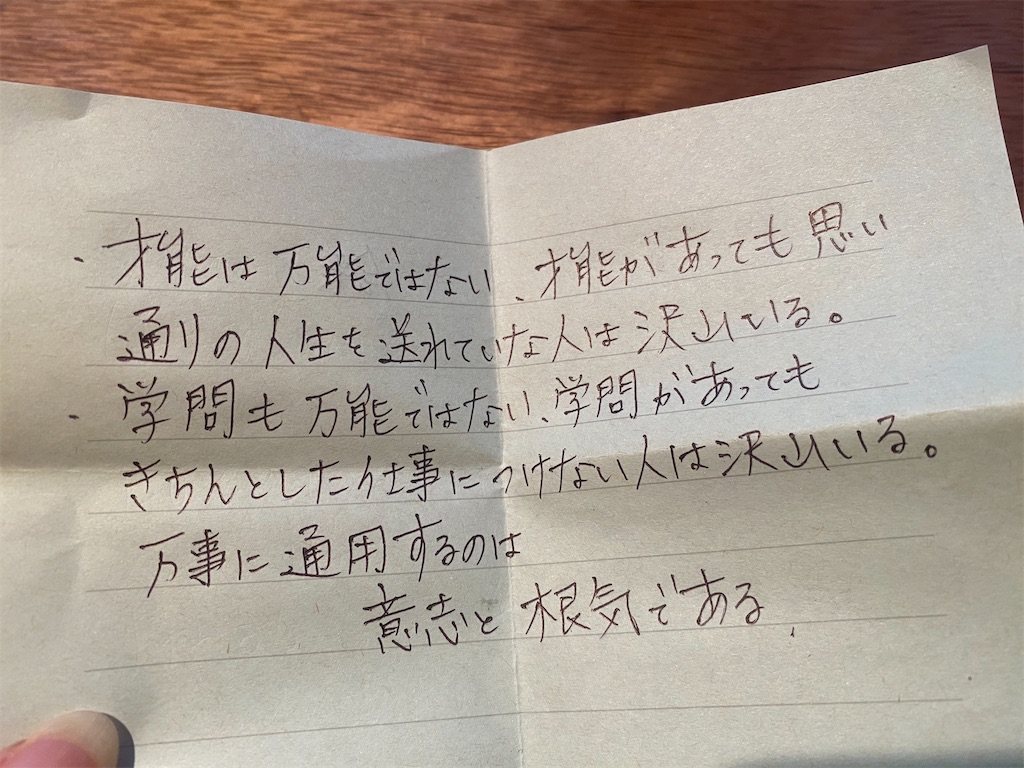 ・才能は万能ではない、才能があっても思い
通りの人生を送れていな人は沢山いる。
・学問も万能ではない、学問があっても
きちんとした仕事につけない人は沢山いる。
万事に通用するのは
意志と根気である.